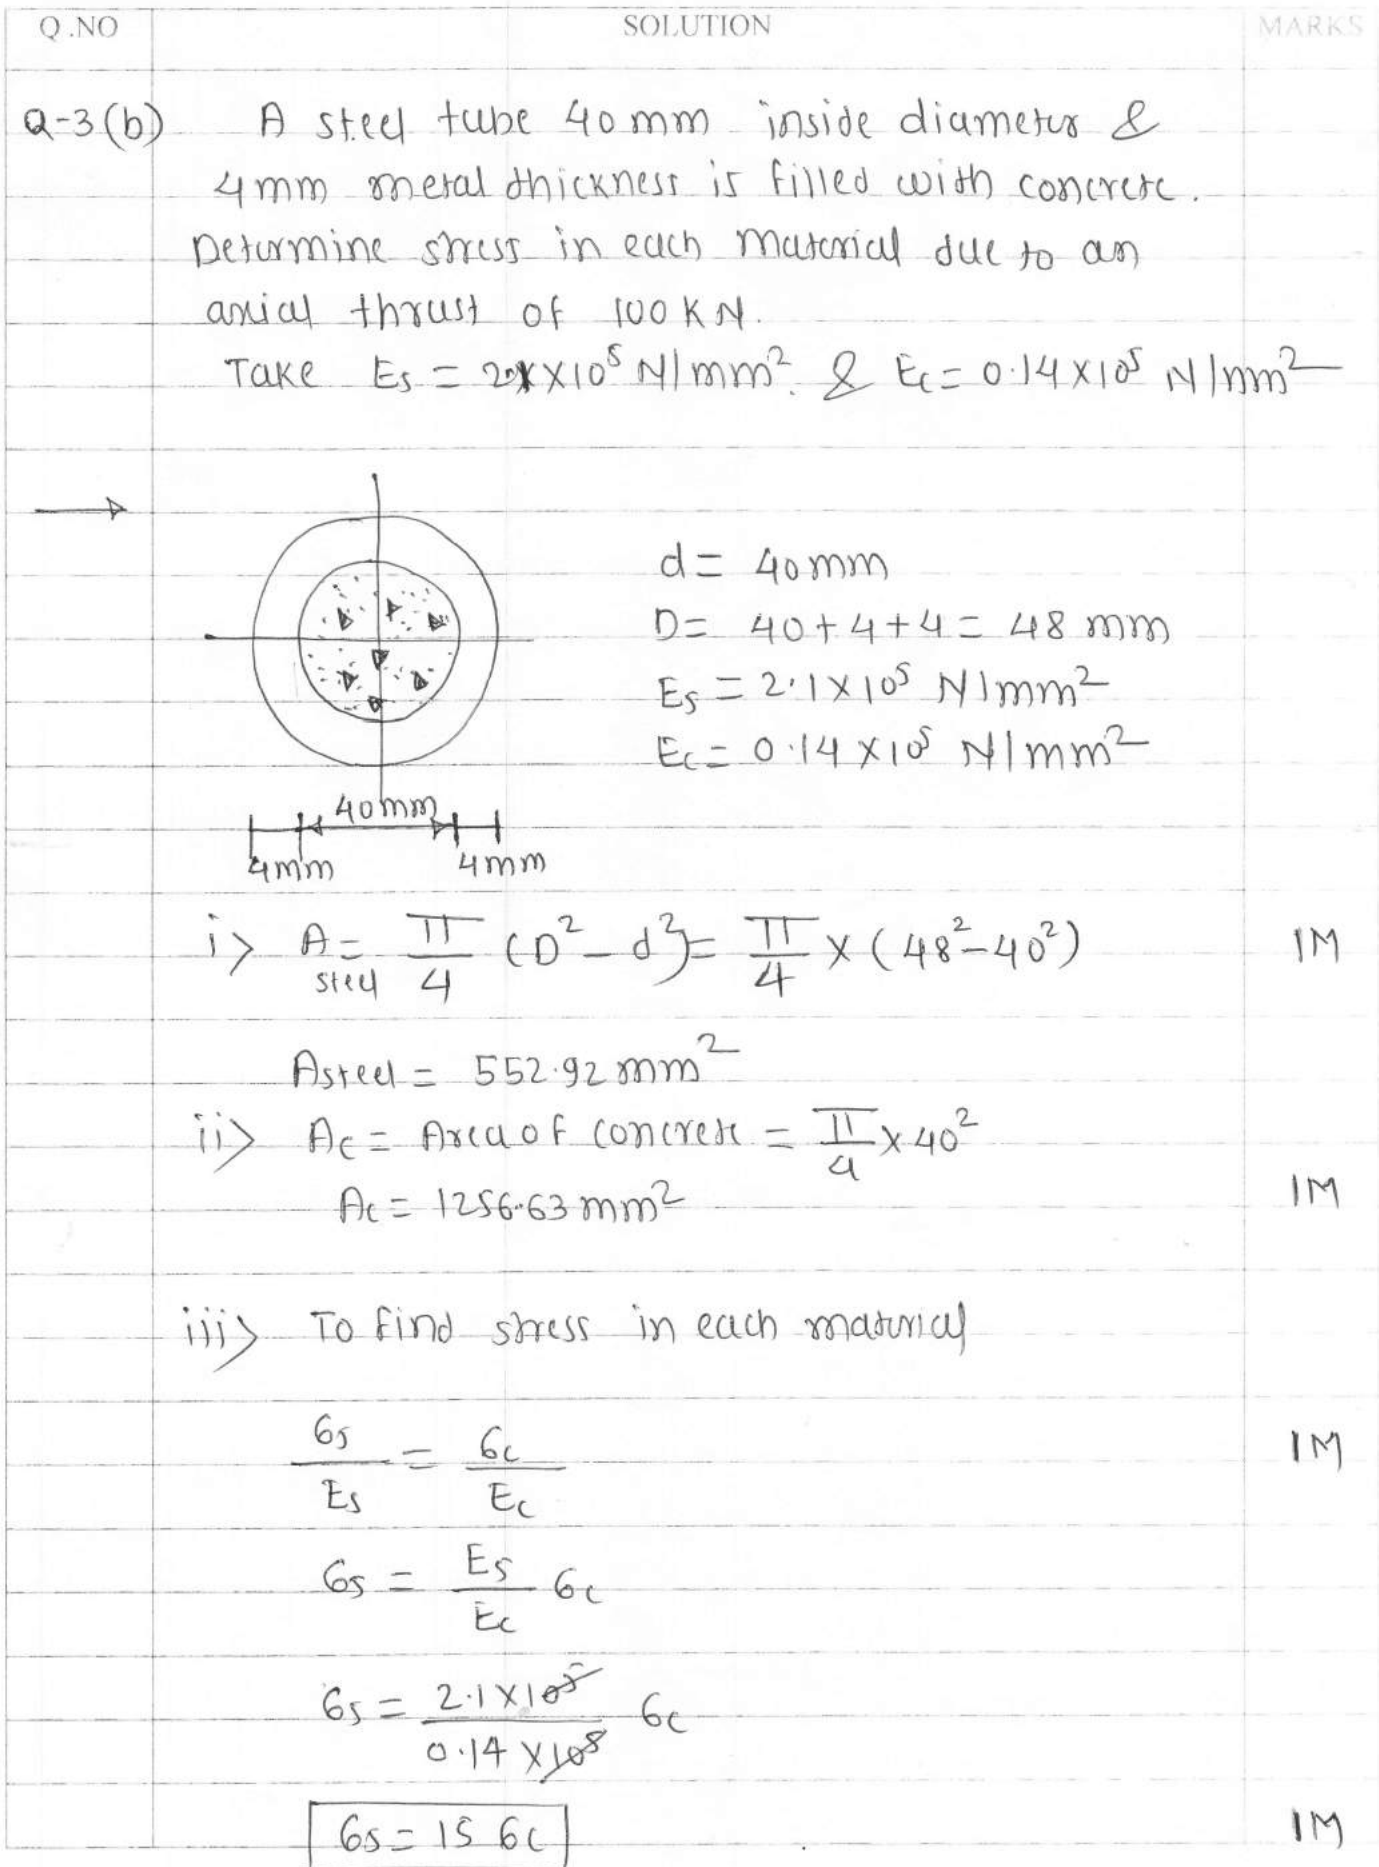 Q.NO SOLUTION MARKS
Q-3(b) A steel tube 40mm inside diameter &
4mm metal thickness is filled with concrete.
Determine stress in each material due to an
axial thrust of 100 KN.
Take Es = 2.1×10⁵ N/mm². & Ec = 0.14×10⁵ N/mm²
d = 40mm
D = 40+4+4 = 48 mm
Es = 2.1×10⁵ N/mm²
Ec = 0.14×10⁵ N/mm²
40mm
4mm 4mm
i> A steel = π/4 (D² - d²) = π/4 × (48² - 40²) 1M
Asteel = 552.92 mm²
ii> Ac = Area of concrete = π/4 × 40²
Ac = 1256.63 mm² 1M
iii> To find stress in each material
σs/Es = σc/Ec 1M
σs = Es/Ec σc
σs = 2.1×10⁵/0.14×10⁵ σc
σs = 15 σc 1M